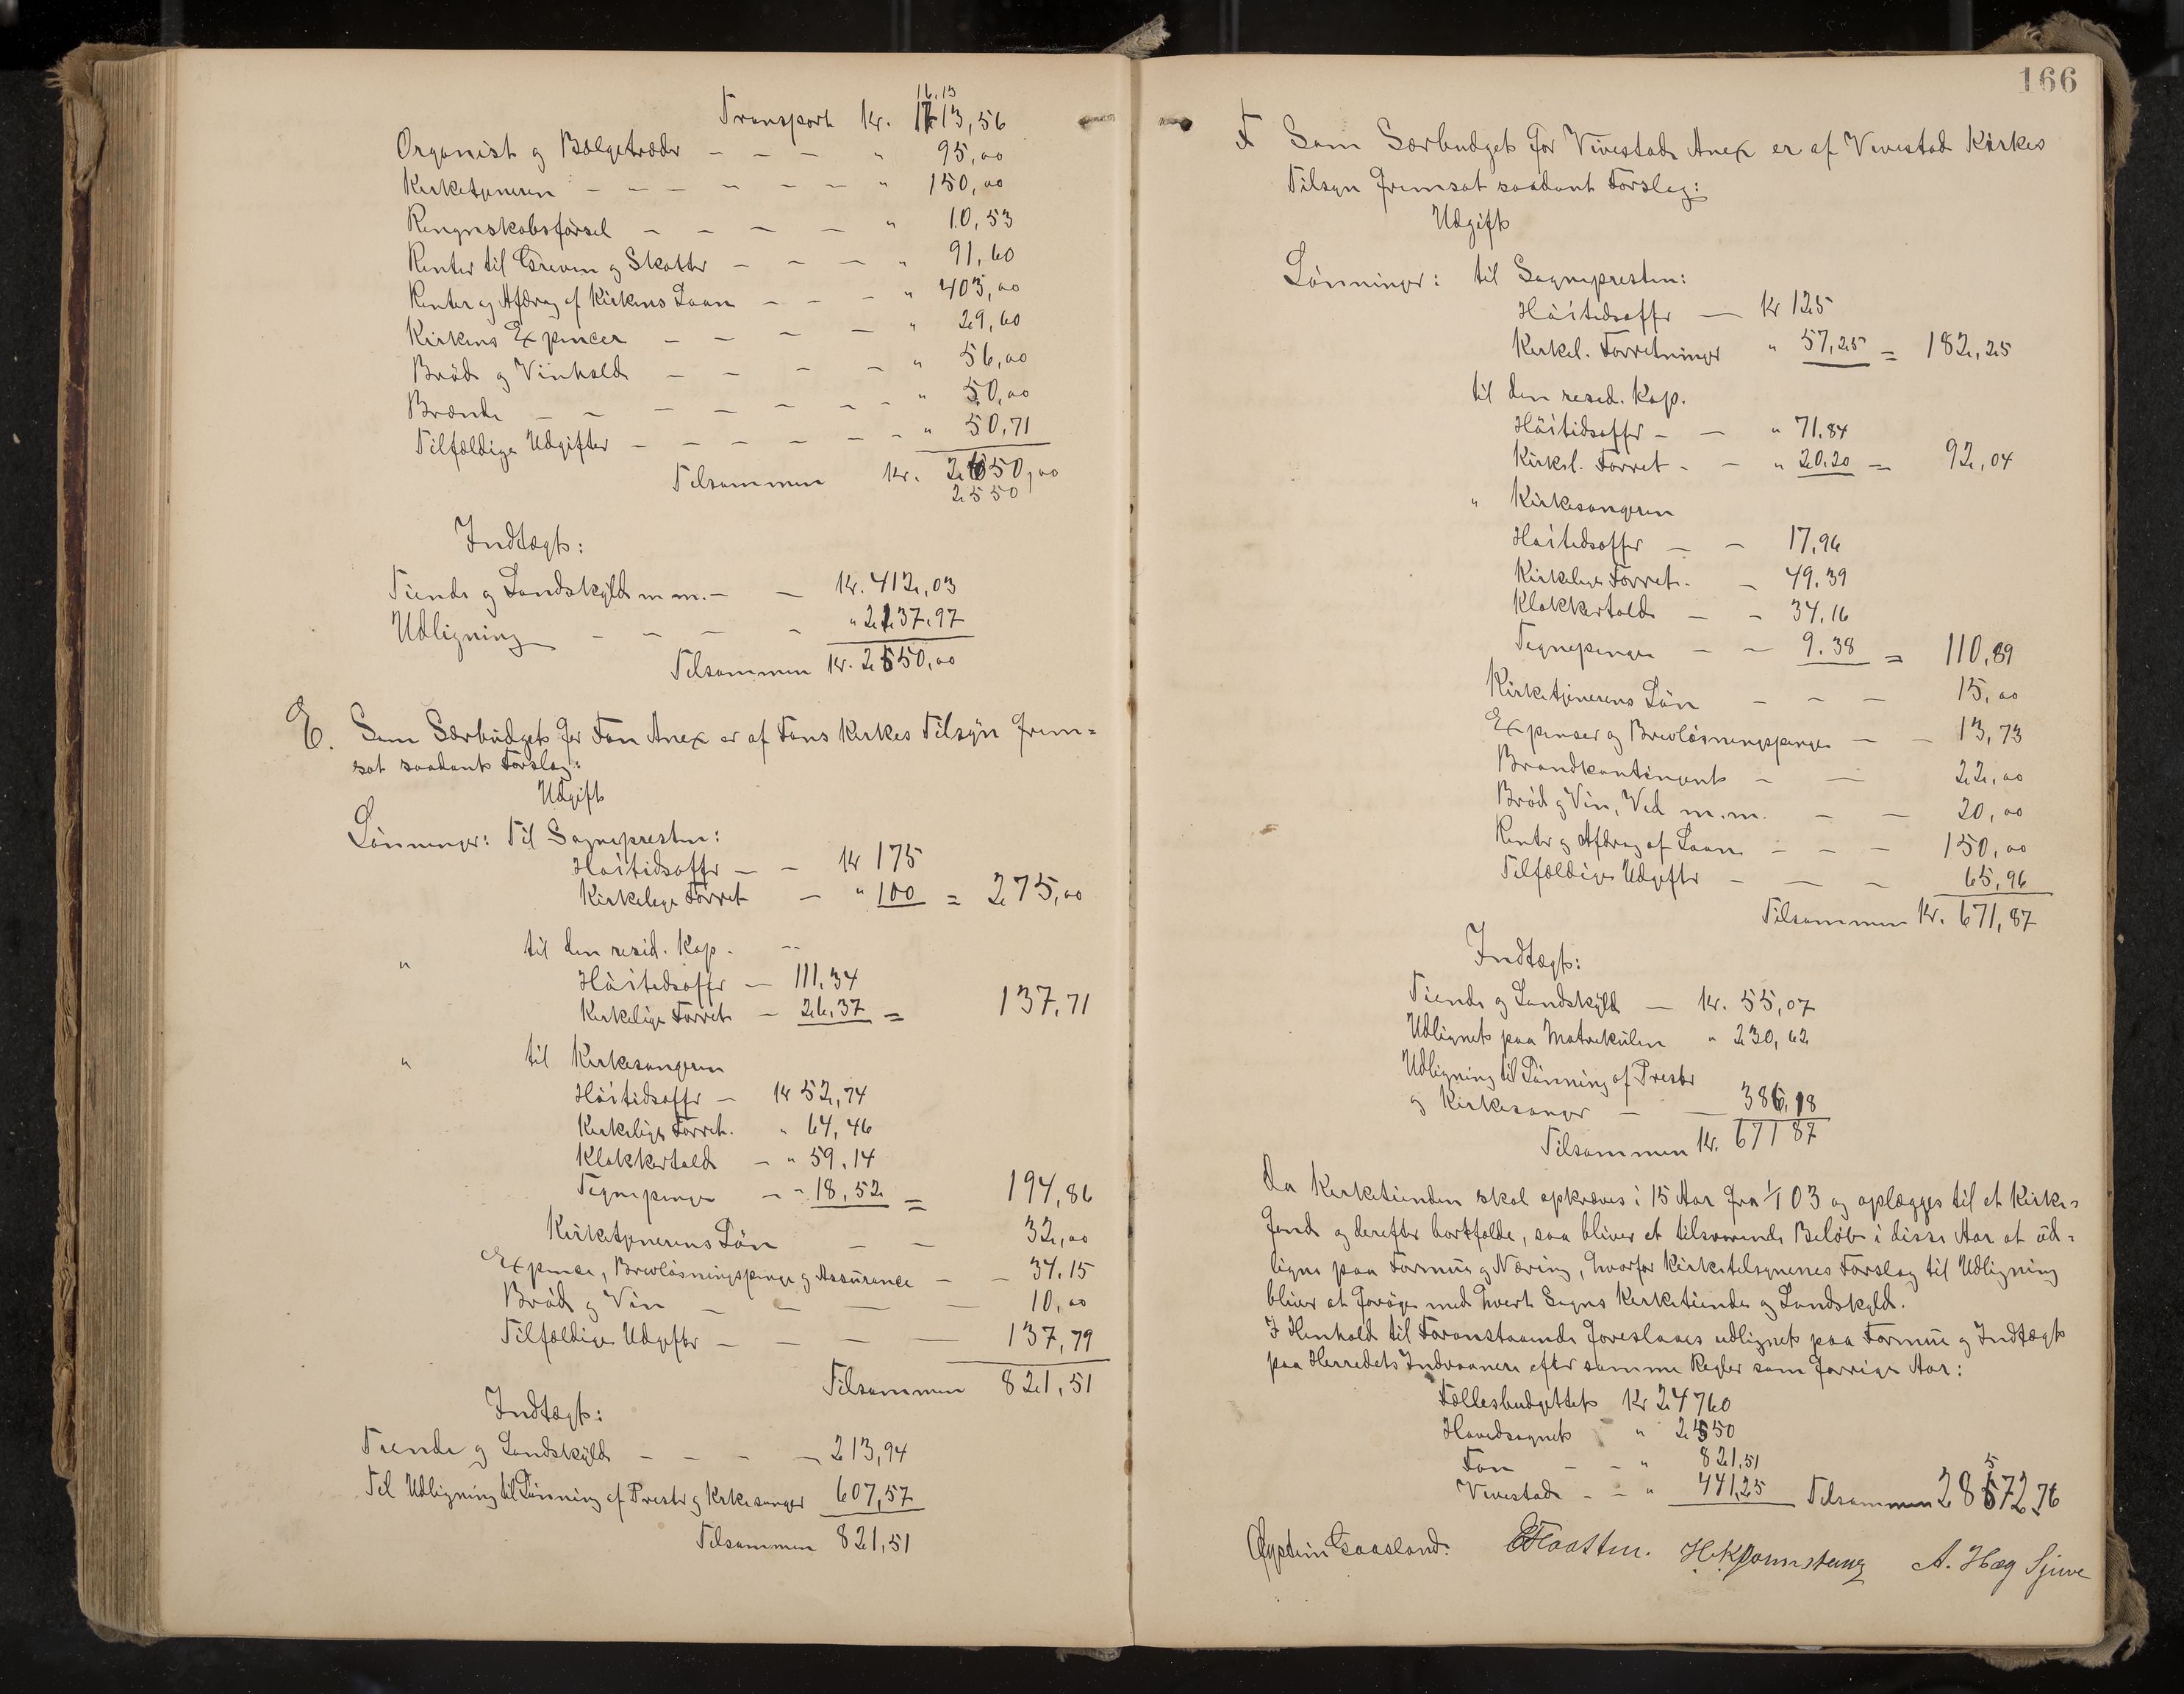 16,13
Transport Kr. 1713,56
Organist og Bælgetræder - - - " 95,00
Kirketjeneren - - - - - - " 150,00
Regnskabsførsel - - - - " 10,53
Renter til Greven og Skatter - - - " 91,60
Renter og Afdrag af Kirkens Laan - - - " 403,00
Kirkens Expencer - - - - " 29,60
Brød og Vinhold - - - - " 56,00
Brænde - - - - - - - " 50,00
Tilfældige Udgifter - - - - - - " 50,71
Tilsammen Kr. 2650,00
2550
Indtægt:
Tiende og Landskyld m.m. - - Kr. 412,03
Udligning - - - - " 2137.97
Tilsammen Kr. 2550,00
E. Som Særbudget for Fon Anex er af Fons Kirkes Tilsyn frem=
sat saadant Forslag:
Udgift
Lønninger: Til Sognepresten:
Høitidsoffer - - Kr 175
Kirkelige Forret - " 100 = 275,00
" til den resid. Kap. --
Høitidsoffer - 111,34
Kirkelige Forret - 26,37 = 137,71
" til Kirkesangeren
Høitidsoffer - Kr 52,74
Kirkelige Forret. " 64,46
Klokkertold - " 59.14
Tegnepenge - - 18,52 = 194,86
Kirketjenerens Løn - - 32,00
Expence, Brevløsningspenge og Assurance - - 34.15
Brød og Vin - - - - 10,00
Tilfældige Udgifter - - - - 137,79
Tilsammen 821,51
Indtægt:
Tiende og Landskyld - - - - 213,94
Til Udligning til Lønning af Prester og Kirkesanger 607,57
Tilsammen 821,51
166
F Som Særbudget for Vivestad Anex er af Vivestad Kirkes
Tilsyn fremsat saadant Forslag:
Udgift
Lønninger: til Sognepresten:
Høitidsoffer - Kr 125
Kirkel. Forretninger " 57,25 = 182,25
til den resid. Kap.
Høitidsoffer - - " 71.84
Kirkel. Forret - - " 20.20 = 92,04
" Kirkesangeren
Høitidsoffer - - 17,96
Kirkelige Forret. - 49.39
Klokkertold - - 34.16
Tegnepenge - - 9.38 = 110,89
Kirketjenerens Løn - - - 15,00
Expenser og Brevløsningspenge - - 13,73
Brandkontingent - - 22,00
Brød og Vin, Ved m.m. - - 20,00
Renter og Afdrag af Laan - - - 150,00
Tilfældige Udgifter - - - 65,96
Tilsammen Kr. 671,87
Indtægt:
Tiende og Landskyld - Kr. 55,07
Udlignet paa Matrekulen " 230,62
Udligning til Lønning af Prester
og Kirkesanger - - 386,18
Tilsammen Kr. 671 87
Da Kirketienden skal opkræves i 15 Aar fra 1/1 03 og oplægges til et Kirke=
fond og derefter bortfalde, saa bliver et tilsvarende Beløb i disse Aar at ud=
ligne paa Formue og Næring, hvorfor Kirketilsynenes Forslag til Udligning
bliver at forøge med hvert Sogns Kirketiende og Landskyld.
I Henhold til Foranstaaende foreslaaes udlignet paa Formue og Indtægt
paa Herredets Indvaanere efter samme Regler som forrige Aar:
Fællesbudgettet Kr 24760
Hovedsognet " 2550
Fon - - " 821,51
5
Vivestad - - " 441,25 Tilsammen 28572,76
Øystein Gaasland. H. K. Jarmstang A. Høeg Sjuve